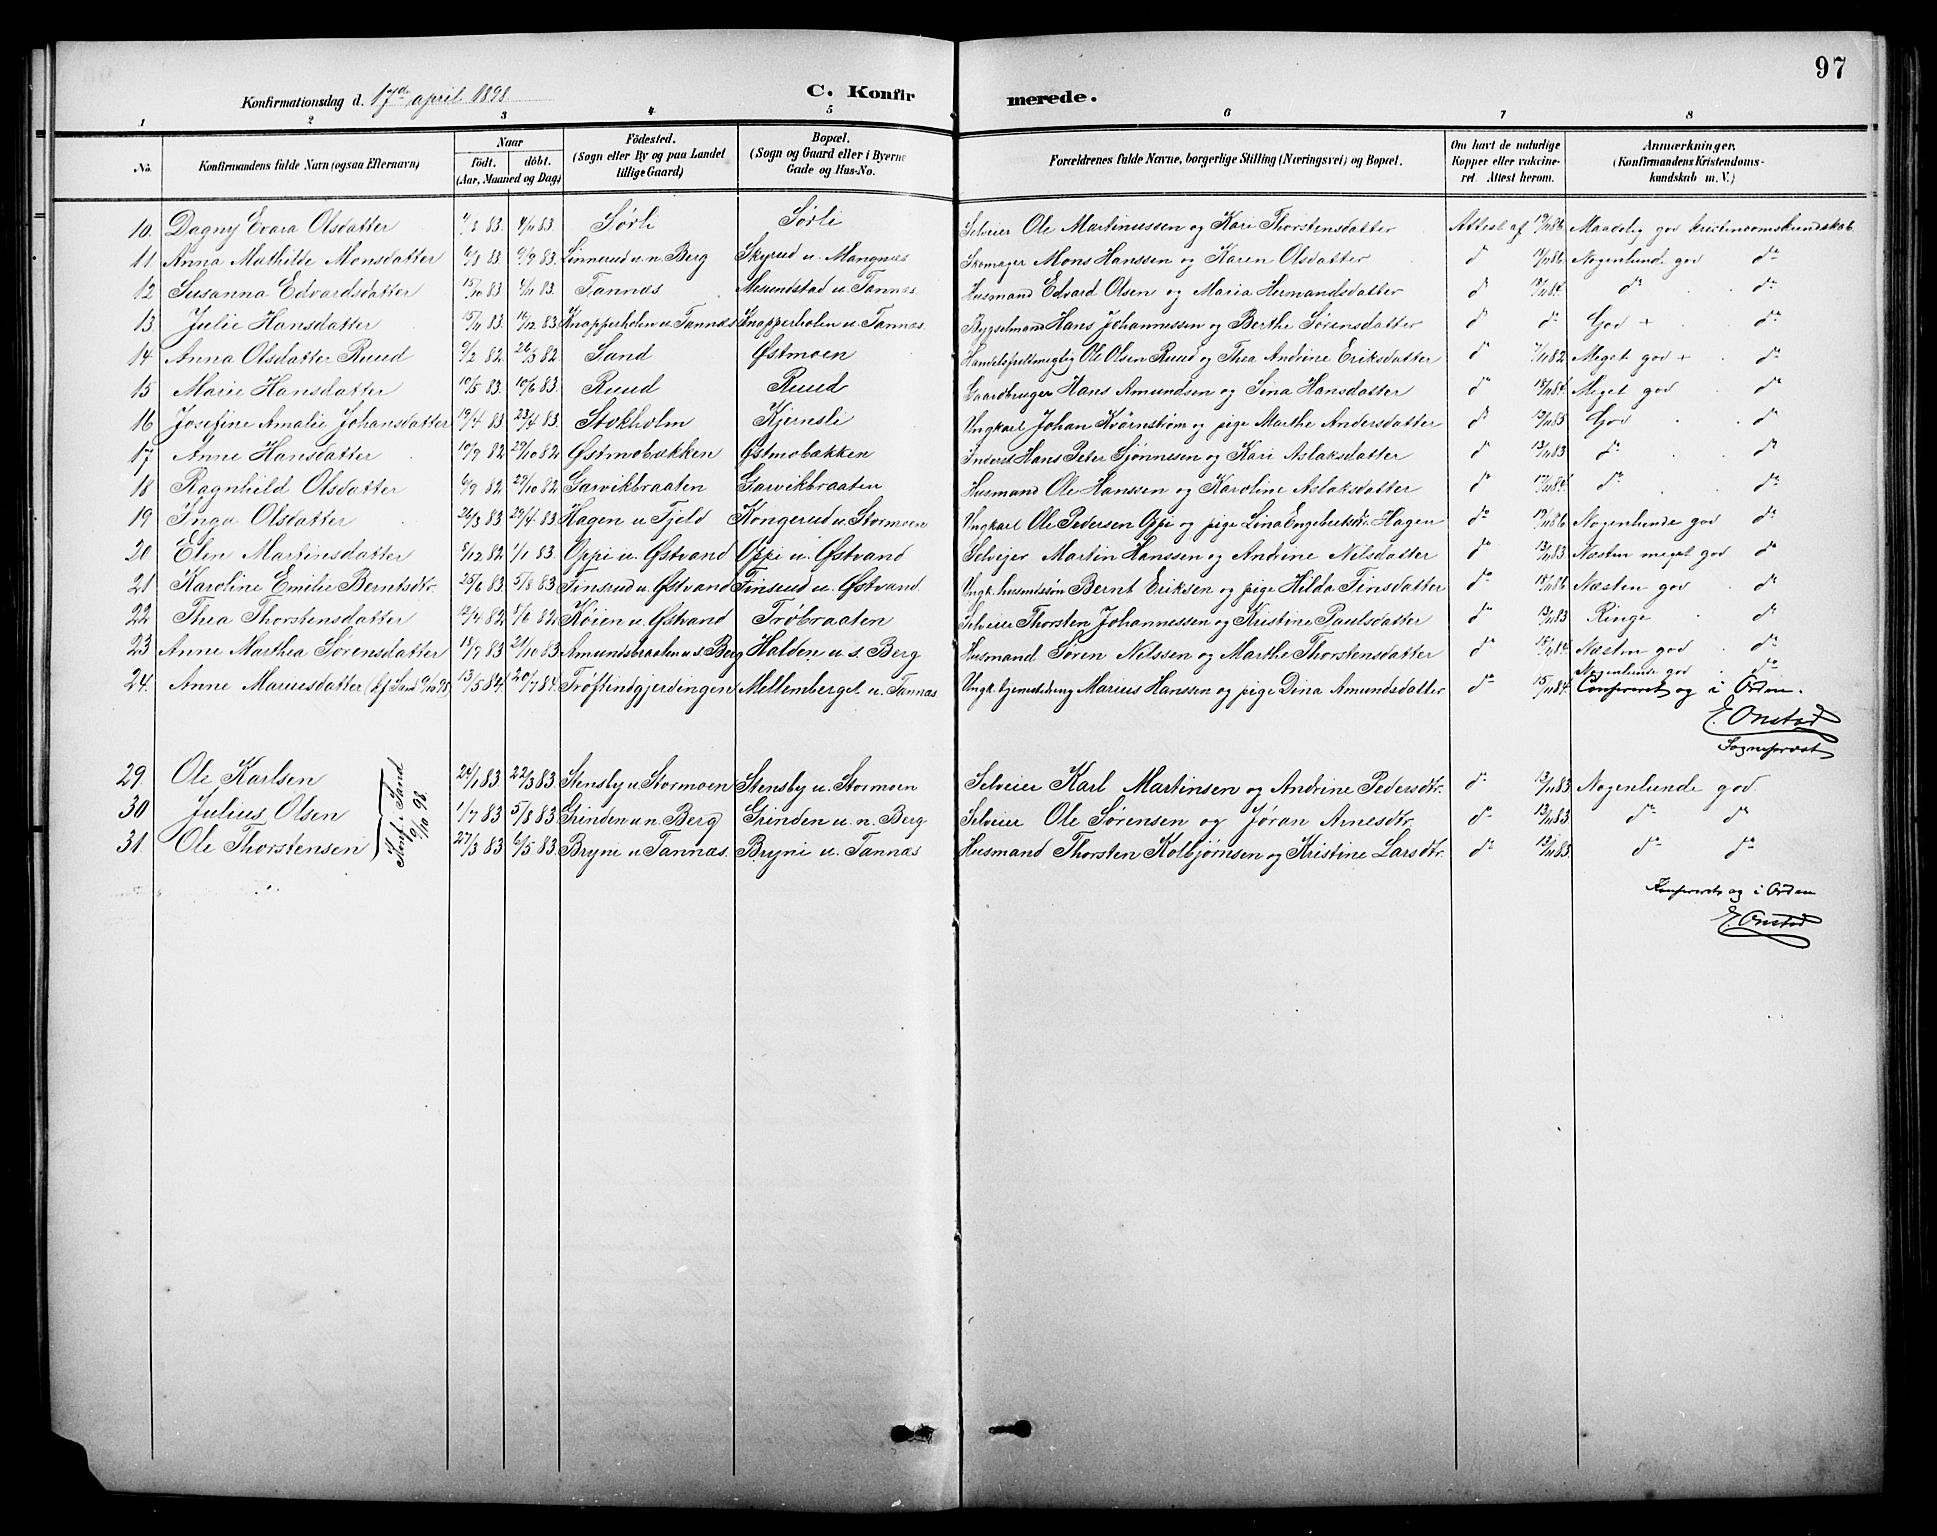 97
Konfirmationsdag d. 17de april 1898
C. Konfirmerede.
1 2 3 4 5 6 7 8
No. Konfirmandens fulde Navn (ogsaa Efternavn) Naar født. døbt. (Aar, Maaned og Dag) Födested. (Sogn eller By og paa Landet tillige Gaard) Bopæl. (Sogn og Gaard eller i Byerne Gade og Hus-No. Forældrenes fulde Navne, borgerlige Stilling (Næringsvei) og Bopæl. Om havt de naturlige Kopper eller vakcineret. Attest herom. Anmærkninger. (Konfirmandens Kristendomskundskab m. V.)
10. Dagny Evara Olsdatter 83. 4/11 83. Sørli Sørli Selveier Ole Martinussen og Kari Thorstensdatter Attest af 86 Maadelig god kristendomskundskab
11 Anna Mathilde Monsdatter 6/8 83 9/9 83. Linnerud u. n. Berg Skyrud u. Mangnæs Skomager Mons Hanssen og Karen Olsdatter d 86. Nogenlunde god do
12 Susanna Edvardsdatter 15/10 83 4/11 83. Tannæs Mesundstad u. Tannæs Husmand Edvard Olsen og Maria Hermandsdatter d 84. do do
13 Julie Hansdatter 15/11 83. 16/12 83 Knapperholen u. Tannæs Knapperholen u. Tannæs. Bygselmand Hans Johannessen og Berthe Sørensdatter d do God + do
14 Anna Olsdatter Ruud 9/2 82 26/3 82 Sand Østmoen Handelsfuldmegtig Ole Olsen Ruud og Thea Andrine Eriksdatter d 7/11 82 Meget god + do
15 Marie Hansdatter 10/5 83. 10/6 83. Ruud Ruud Gaardbruger Hans Amundsen og Sina Hansdatter do 84. Meget god do
16 Josefine Amalie Johansdatter 19/4 83 23/4 83. Stokholm Kjernsli Ungkarl Johan Kvørnstrøm og pige Marthe Andersdatter d 85 God do
17 Anne Hansdatter 10/9 82 29/10 82 Østmobækken Østmobækken Inderst Hans Peter Sjønnesen og Kari Aslaksdatter d 13/11 83 do d
18 Ragnhild Olsdatter 6/9 82 29/10 82 Garvikbraaten Garvikbraaten Husmand Ole Hanssen og Karoline Aslaksdatter d 84. do do
19 Inga Olsdatter 26/3 83 29/4 83 Hagen u. Fjeld Kongerud u. Stormoen Ungkarl Ole Pedersen Oppi og pige Lina Engebretsdtr. Hagen do 86 Nogenlunde god do
20 Elen Martinsdatter 8/12 82 1/1 83. Oppi u. Østvand Oppi u. Østvand Selvejer Martin Hanssen og Andrine Nilsdatter do 13/11 83 Næsten meget god do
21 Karoline Emilie Berntsdtr. 25/6 83 5/8 83 Finsrud u. Østvand Finsrud u. Østvand. Ungk. husmandssøn Bernt Eriksen og pige Hilda Finsdatter do 86 Næsten god d
22 Thea Thorstensdatter 12/4 82 82 Køien u. Østvand Trøbraaten Selveier Thorsten Johannessen og Kristine Paulsdatter do 13/11 83 Ringe do
23 Anne Marthea Sørensdatter 18/9 83 21/10 83. Amundsbraaten u. s. Berg Halden u. s. Berg Husmand Søren Nilssen og Marthe Thorstensdatter do 84. Næsten god do
24. Anne Mariusdatter (kf Sand 9/10 98) 13/5 84. 20/7 84. Trøftindgjerdingen Mellemberget u. Tannæs Ungk. hjemmeldeng Marius Hanssen og pige Dina Amundsdatter do 15/11 84. Nogenlunde god do
Confereret og i Orden.
E. Onstad
Sogneprest
29. Ole Karlsen 24/1 83. 22/3 83. Stensby u. Stormoen Stensby u. Stormoen Selveier Karl Martinsen og Andrine Pedersdtr. do 13/11 83 Nogenlunde god
30 Julius Olsen 1/7 83 5/8 83 Grinden u. n. Berg Grinden u. n. Berg Selveier Ole Sørensen og Jøran Arnesdtr. do 13/11 83 do do
31. Ole Thorstensen 27/3 83 6/5 83. Bryni u. Tannæs. Bryni u. Tannæs Husmand Thorsten Kolbjørnsen og Kristine Larsdtr. do 13/11 83 do do
Konf. i Sand 9/10 98.
Konfereret og i Orden
E. Onstad